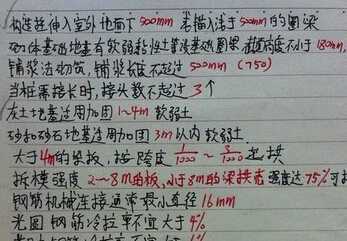 构造柱伸入室外地面下500mm 或锚入浅于500mm的圈梁
砌体基础地基有软弱黏性土等满基础圈梁 截面高度不小于180mm,
铺浆法砌筑,铺浆长度不超过 500mm (750)
当桩需接长时,接头数不超过3个
灰土地基适用加固1~4m 软弱土
砂和砂石地基适用加固3m以内软弱土
大于4m的梁板,按跨度 1/1000 ~ 3/1000 起拱
拆模强度 2~8m的板,小于8m的梁拱壳 强度达75%可拆
钢筋机械连接通常最小直径16mm
光圆钢筋冷拉率不宜大于4%